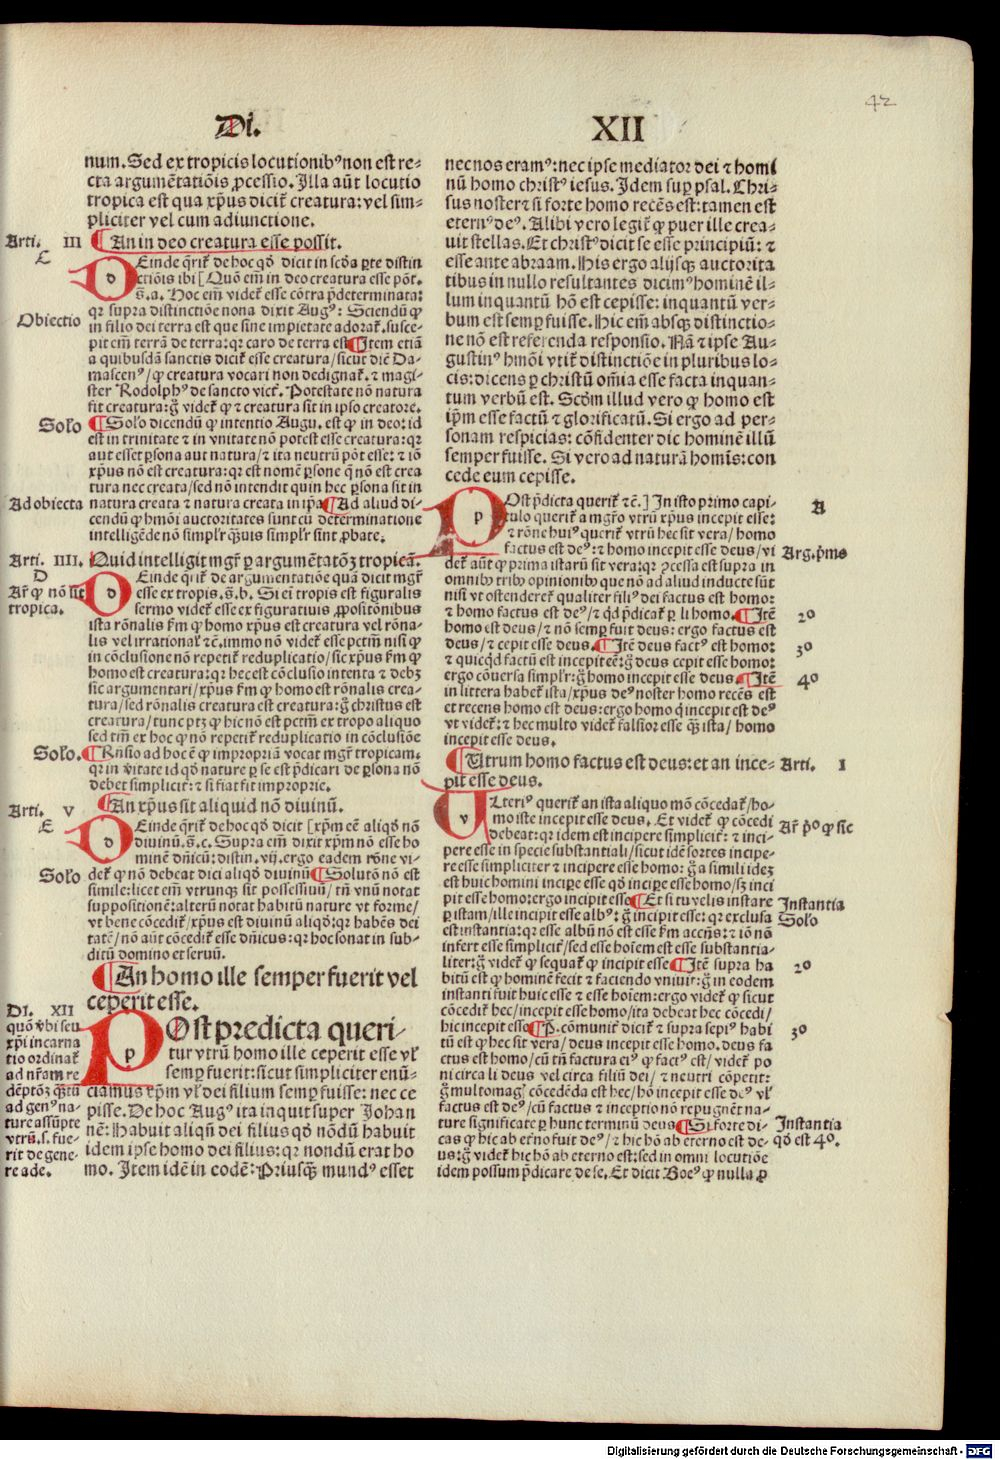 42
Di.
XII
num. Sed ex tropicis locutionibꝰ non est re⸗
cta argumētatiōis ꝓcessio. Illa aūt locutio
tropica est qua xp̄us dicit̄ creatura: vel sim⸗
pliciter vel cum adiunctione.
Arti. III
¶ An in deo creatura esse possit.
C
DEinde q̄rit̄ de hoc qđ dicit in scđa ꝑte distin
ctiōis ibi [Quō em̄ in deo creatura esse pōt.
s̄.a. Hoc em̄ videt̄ esse cōtra p̄determinata:
qr supra distinctiōe nona dixit Augꝰ: Sciendū ꝙ
Obiectio
in filio dei terra est que sine impietate adorat̄. susce⸗
pit em̄ terrā de terra: qr caro de terra est ¶ Item etiā
a quibusdā sanctis dicit̄ esse creatura/sicut dic̄ Da⸗
mascenꝰ/ꝙ creatura vocari non dedignat̄. ⁊ magi⸗
ster Rodolphꝰ de sancto vict̄. Potestate nō natura
fit creatura: g̊ videt̄ ꝙ ⁊ creatura sit in ipso creatore.
Solo
¶ Solo dicendū ꝙ intentio Augu. est ꝙ in deo: id
est in trinitate ⁊ in vnitate nō potest esse creatura: qr
aut esset ꝑsona aut natura/⁊ ita neutrū pōt esse: ⁊ iō
xp̄us nō est creatura: qr est nomē ꝑsone q̄ nō est crea
tura nec creata/sed nō intendit quin hec ꝑsona sit in
Ad obiecta
natura creata ⁊ natura creata in ip̄a ¶ Ad aliud di⸗
cendū ꝙ hmōi auctoritates sunt cū determinatione
intelligēde nō simplr̄ q̄uis simplr̄ sint ꝓbate.
Arti. IIII.
Quid intelligit mgr̄ ꝑ argumētatōꝫ tropicā.
D
Ar̄ ꝙ nō sit
tropica.
DEinde q̄rit̄ de argumentatiōe quā dicit mgr̄
esse ex tropis. s̄.b. Si ei tropis est figuralis
sermo videt̄ esse ex figuratiuis ꝓpositōnibus
ista rōnalis km̄ ꝙ homo xp̄us est creatura vel rōna⸗
lis vel irrational̄ ⁊c̄. immo nō videt̄ esse pctm̄ nisi ꝙ
in cōclusione nō repetit̄ reduplicatio/sic xp̄us km̄ ꝙ
homo est creatura: qr hec est cōclusio intenta ⁊ debꝫ
sic argumentari/xp̄us km̄ ꝙ homo est rōnalis crea⸗
tura/sed rōnalis creatura est creatura: g̊ christus est
creatura/tunc ptꝫ ꝙ hic nō est pctm̄ ex tropo aliquo
sed tm̄ ex hoc ꝙ nō repetit̄ reduplicatio in cōclusiōe
Solo.
¶ Rn̄sio ad hoc ē ꝙ impropriā vocat mgr̄ tropicam.
qr in v̄itate id qđ nature ꝑ se est p̄dicari de ꝑsona nō
debet simplicit̄: ⁊ si fiat fit improprie.
Arti. V
¶ An xp̄us sit aliquid nō diuinū.
E
DEinde q̄rit̄ de hoc qđ dicit [xp̄m eē aliqđ nō
diuinū. s̄.c. Supra em̄ dixit xp̄m nō esse ho
minē dn̄icū: distin. vij. ergo eadem rōne vi⸗
Solo
det̄ ꝙ nō debeat dici aliqđ diuinū ¶ Solutō nō est
simile: licet em̄ vtrunqꝫ sit possessiuū/tn̄ vnū notat
suppositionē: alterū notat habitū nature vt forme/
vt bene cōcedit̄/xp̄us est diuinū aliqđ: qr habēs dei
tatē/nō aūt cōcedit̄ esse dn̄icus: qr hoc sonat in sub⸗
ditū domino et seruū.
¶ An homo ille semper fuerit vel
ceperit esse.
DI. XII
quō v̄bi seu
xp̄i incarna
tio ordinat̄
ad nr̄am re
dēptōꝫ q̄stū
ad genꝰ na⸗
ture assūpte
vtrū.s. fue⸗
rit de gene⸗
re ade.
POst predicta queri⸗
tur vtrū homo ille ceperit esse vl̄
semꝑ fuerit: sicut simpliciter enū⸗
ciamus xp̄m vl̄ dei filium semꝑ fuisse: nec ce
pisse. De hoc Augꝰ ita inquit super Johan
nē: Habuit aliqn̄ dei filius qđ nōdū habuit
idem ipse homo dei filius: qr nondū erat ho
mo. Item idē in eodē: Priusqꝫ mundꝰ esset
nec nos eramꝰ: nec ipse mediator dei ⁊ homi
nū homo christꝰ iesus. Idem suꝑ psal. Chri⸗
sus noster ⁊ si forte homo recēs est: tamen est
eternꝰ deꝰ. Alibi vero legit̄ ꝙ puer ille crea⸗
uit stellas. Et christꝰ dicit se esse principiū: ⁊
esse ante abraam. His ergo alijsqꝫ auctorita
tibus in nullo resultantes dicimꝰ hominē il⸗
lum inquantū hō est cepisse: inquantū ver⸗
bum est semꝑ fuisse. Hic em̄ absqꝫ distinctio⸗
ne nō est referenda responsio. Nā ⁊ ipse Au⸗
gustinꝰ hmōi vtit̄ distinctiōe in pluribus lo⸗
cis: dicens ꝑ christū om̄ia esse facta inquan⸗
tum verbū est. Scđm illud vero ꝙ homo est
ip̄m esse factū ⁊ glorificatū. Si ergo ad per⸗
sonam respicias: cōfidenter dic hominē illū
semper fuisse. Si vero ad naturā homīs: con
cede eum cepisse.
POst p̄dicta querit̄ ⁊c̄.] In isto primo capi⸗
tulo querit̄ a mgr̄o vtrū xp̄us incepit esse:
A
⁊ rōne huiꝰ querit̄ vtrū hec sit vera/homo
factus est deꝰ: ⁊ homo incepit esse deus/vi
Arg.p̄ms
det̄ aūt ꝙ prima istarū sit vera: qr ꝓcessa est supra in
omnibꝰ tribꝰ opinionibꝰ que nō ad aliud inducte sūt
nisi vt ostenderet̄ qualiter filiꝰ dei factus est homo:
⁊ homo factus est deꝰ/⁊ qđ p̄dicat̄ ꝑ li homo. ¶ Itē
2o
homo est deus/⁊ nō semꝑ fuit deus: ergo factus est
deus/⁊ cepit esse deus. ¶ Itē deus factꝰ est homo:
3o
⁊ quicqđ factū est incepit eē: g̊ deus cepit esse homo:
ergo cōuersa simplr̄: g̊ homo incepit esse deus. ¶ Itē
4o
in littera habet̄ ista/xp̄us deꝰ noster homo recēs est
et recens homo est deus: ergo homo q̄ incepit est deꝰ
vt videt̄: ⁊ hec multo videt̄ falsior esse qꝫ ista/homo
incepit esse deus.
¶ Utrum homo factus est deus: et an ince⸗
Arti. I
pit esse deus.
ULteriꝰ querit̄ an ista aliquo mō cōcedat̄/ho⸗
mo iste incepit esse deus. Et videt̄ ꝙ cōcedi
Ar̄ p̊o ꝙ sic
debeat: qr idem est incipere simplicit̄: ⁊ inci⸗
pere esse in specie substantiali/sicut idē sortes incipe⸗
re esse simpliciter ⁊ incipere esse homo: g̊ a simili ideꝫ
est huic homini incipe esse qđ incipe esse homo/sꝫ inci
pit esse homo: ergo incipit esse ¶ Et si tu velis instare
Instantia
ꝑ istam/ille incipit esse albꝰ: g̊ incipit esse: qr exclusa
Solo
est instantia: qr esse albū nō est esse km̄ accn̄s: ⁊ iō nō
infert esse simplicit̄/sed esse hoīem est esse substantia⸗
liter: g̊ videt̄ ꝙ sequat̄ ꝙ incipit esse ¶ Itē supra ha
2o
bitū est ꝙ hominē fecit ⁊ faciendo vniuit: g̊ in eodem
instanti fuit huic esse ⁊ esse hoīem: ergo videt̄ ꝙ sicut
cōcedit̄ hec/incepit esse homo/ita debeat hec cōcedi/
hic incepit esse ¶ P. cōmunit̄ dicit̄ ⁊ supra sepiꝰ habi
3o
tū est ꝙ hec sit vera/deus incepit esse homo. deus fa
ctus est homo/cū tn̄ factura eiꝰ ꝙ factꝰ est/videt̄ po
ni circa li deus vel circa filiū dei/⁊ neutri cōpetit:
g̊ multomagꝭ cōcedēda est hec/hō incepit esse deꝰ vl̄
factus est deꝰ/cū factus ⁊ inceptio nō repugnēt na⸗
ture significate ꝑ hunc terminū deus ¶ Si forte di⸗
Instantia
cas ꝙ hic ab et̄no fuit deꝰ/⁊ hic hō ab eterno est de⸗
qđ est 4o.
us: g̊ videt̄ hic hō ab eterno est: sed in omni locutiōe
idem possum p̄dicare de se. Et dicit Boeꝰ ꝙ nulla ꝓ
Digitalisierung gefördert durch die Deutsche Forschungsgemeinschaft - DFG